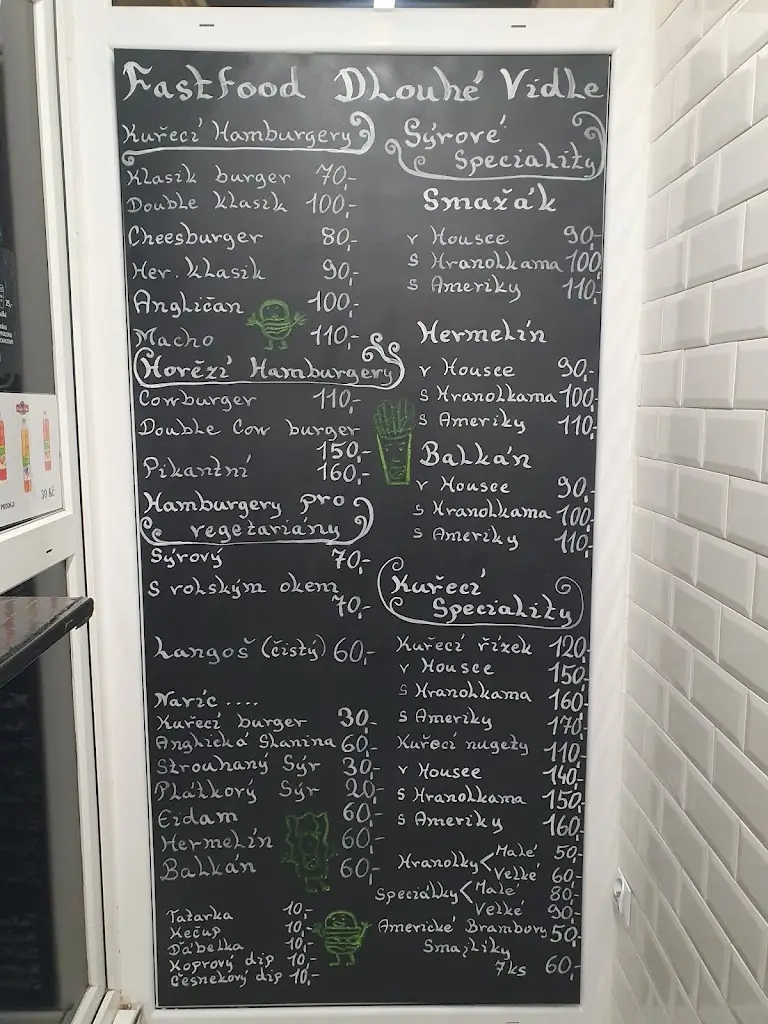 Fastfood Dlouhé Vidle
Kuřecí Hamburgery
Klasik burger 70,-
Double klasik 100,-
Cheesburger 80,-
Her. klasik 90,-
Angličan 100,-
Macho 110,-
Hovězí Hamburgery
Cowburger 110,-
Double Cow burger
150,-
Pikantní 160,-
Hamburgery pro
vegetariány
Sýrový 70,-
S volským okem
70,-
Langoš (čistý) 60,-
Navíc ....
Kuřecí burger 30,-
Anglická Slanina 60,-
Strouhaný Sýr 30,-
Plátkový Sýr 20,-
Eidam 60,-
Hermelín 60,-
Balkán 60,-
Tatarka 10,-
Kečup 10,-
Ďábelka 10,-
Koprový dip 10,-
Česnekový dip 10,-
Sýrové
Speciality
Smažák
v Housce 90,-
s Hranolkama 100,-
s Ameriky 110,-
Hermelín
v Housce 90,-
s Hranolkama 100,-
s Ameriky 110,-
Balkán
v Housce 90,-
s Hranolkama 100,-
s Ameriky 110,-
Kuřecí
Speciality
Kuřecí řízek 120,-
v Housce 150,-
s Hranolkama 160,-
s Ameriky 170,-
Kuřecí nugety 110,-
v Housce 140,-
s Hranolkama 150,-
s Ameriky 160,-
Hranolky < Malé 50,-
Velké 60,-
Speciálky < Malé 80,-
Velké 90,-
Americké Brambory 50,-
Smajlíky
7ks 60,-
30 Kč